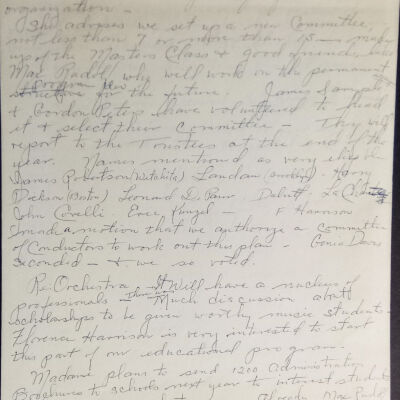 organization —
She advises we set up a new Committee,
not less than 7 or more than 15 — made
up of the Masters Class & good friends, like
Max Rudolf, who will work on the permanent
structure for the future. James Sample
& Gordon Peters have volunteered to head
it & select their Committee — They will
report to the Trustees at the end of the
year. Names mentioned as very eligible
James Robertson (Wichita) Landau (Brooklyn) Harry
Dickson (Boston) Leonard De Paur
John Covelli F Harrison
made a motion that we authorize a committee
of Conductors to work out this plan — Davis
seconded — & we so voted.
Re: Orchestra It will have a nucleus of
professionals — Much discussion about
scholarships to be given worthy music students
Florence Harrison is very interested to start
this part of our educational program.
Madame plans to send 1200 administration
Brochures to schools next year to interest students
Max Rudolf